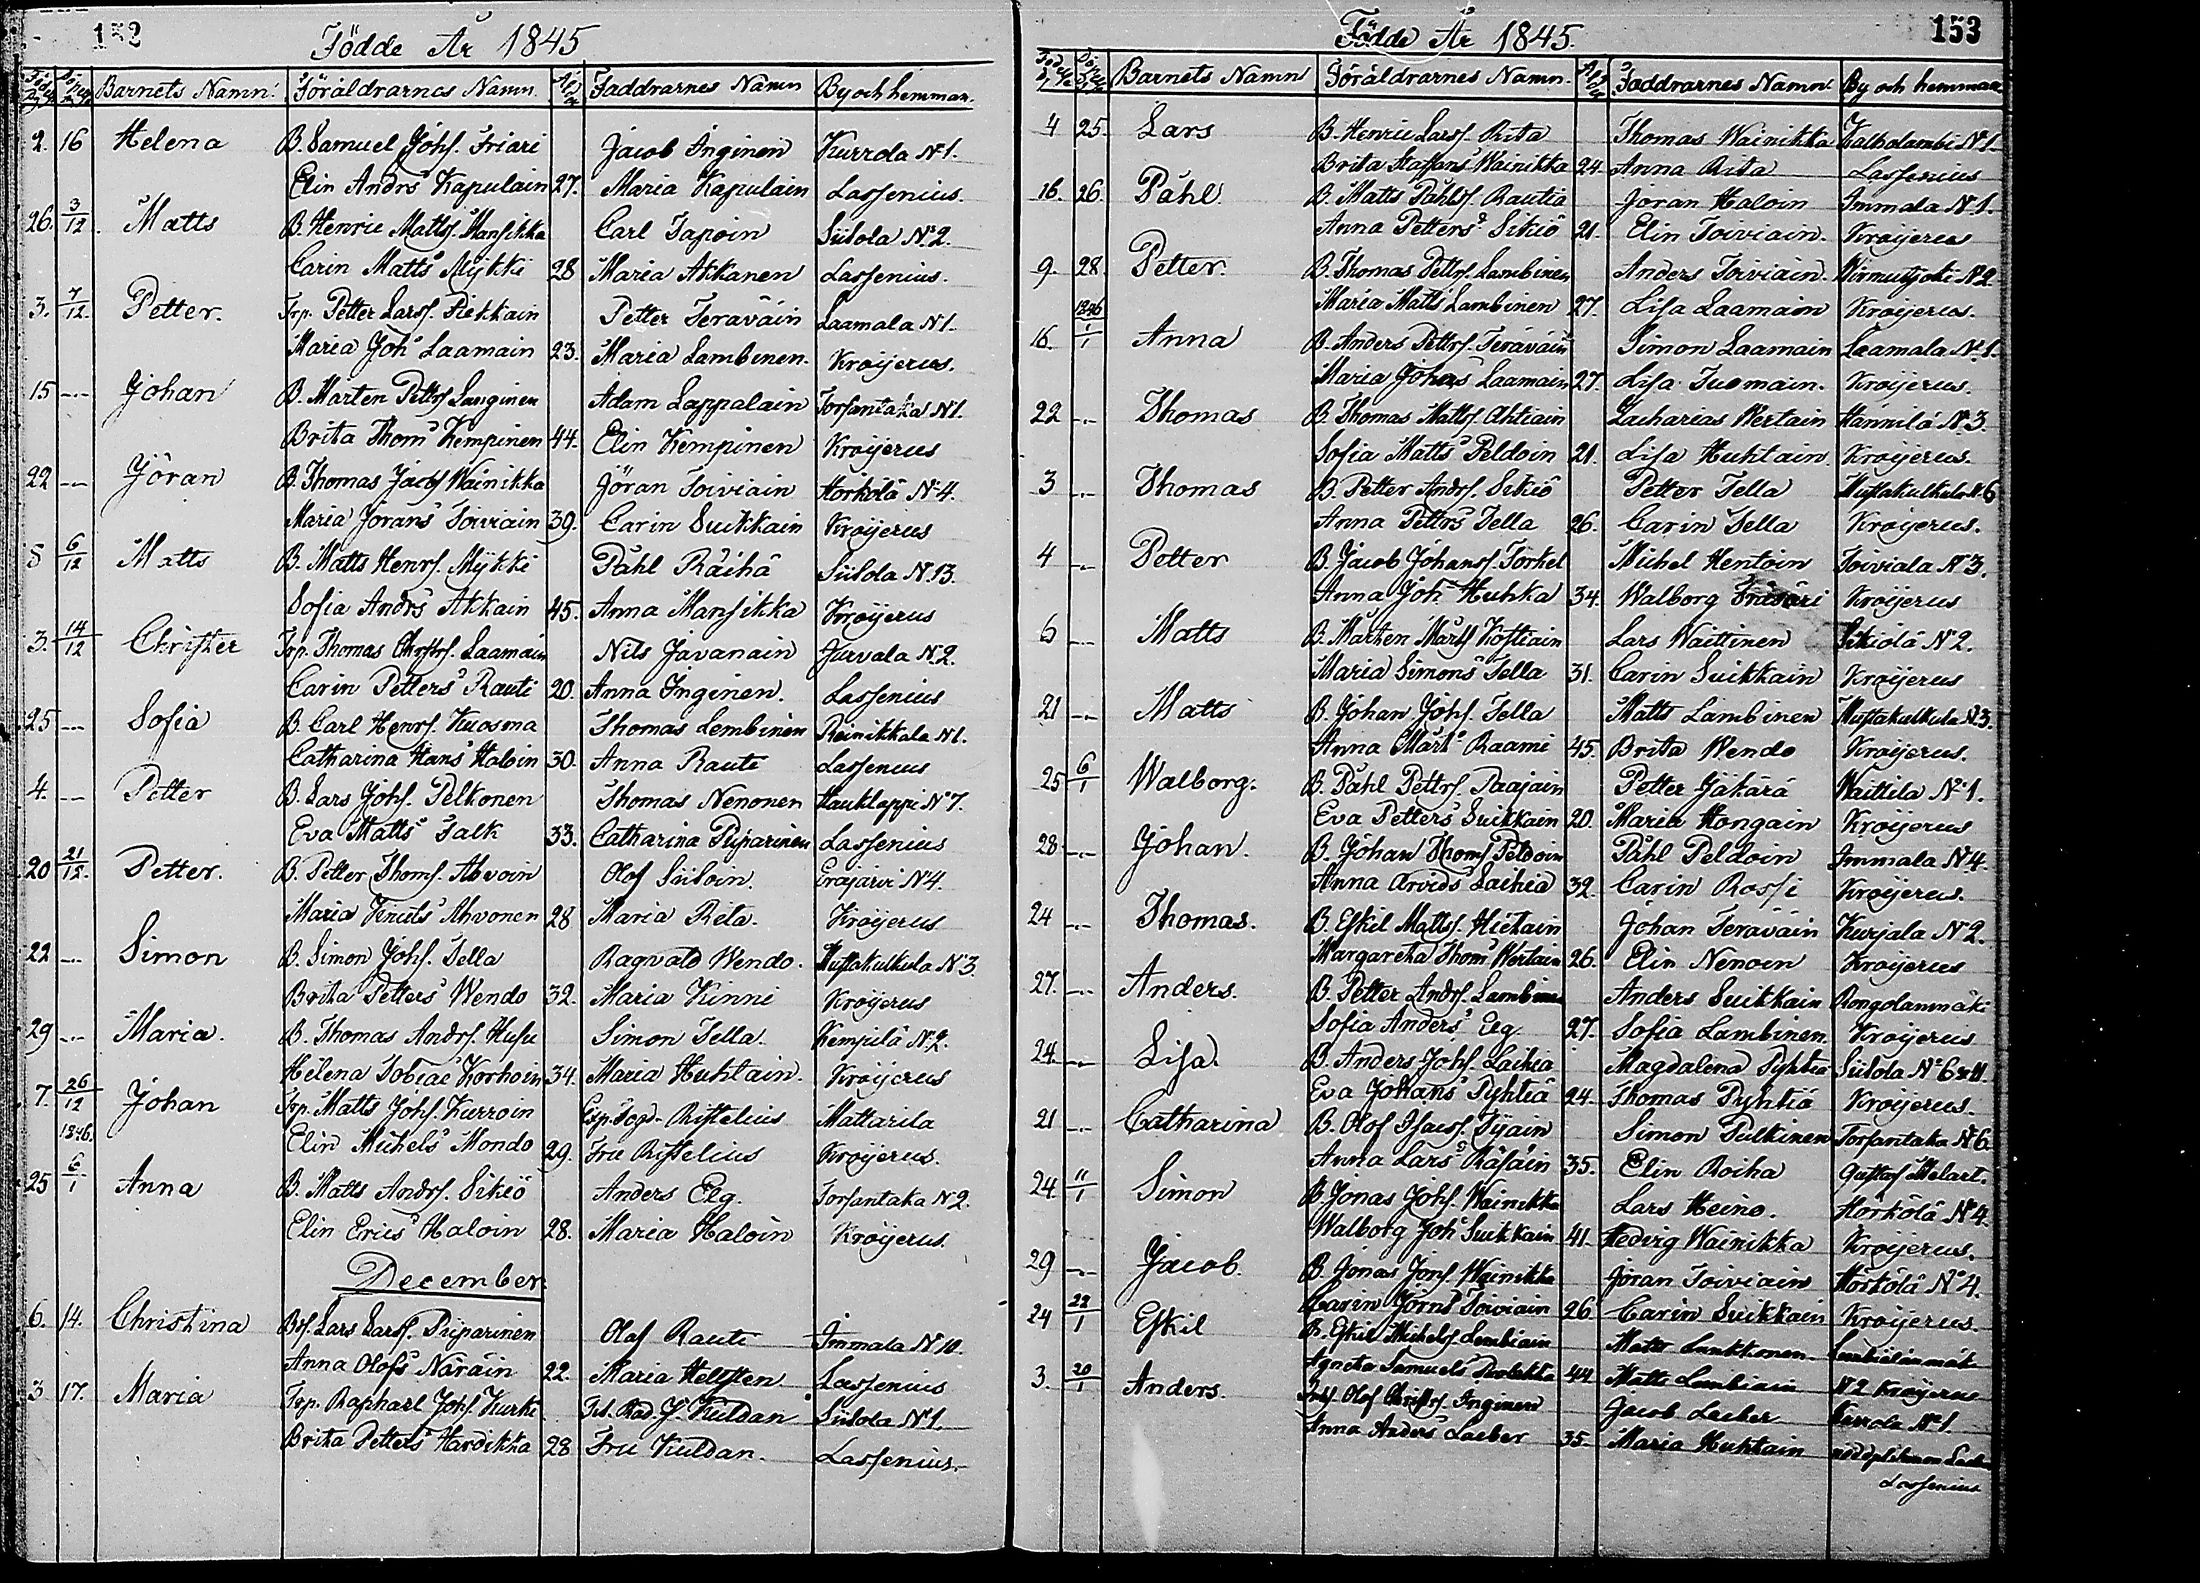 152
Födde År 1845
Barnets Namn. Föräldrarnes Namn. Faddrarnes Namn By och hemman.
2. 16 Helena B. Samuel Johs. Friari Jacob Inginen Kurrola N:1.
Elin Andrs Kapulain 27. Maria Kapulain Lassenius.
26. 3/12. Matts B. Henric Matts. Mansikka Carl Tapoin Siilola N:2.
Carin Matts Mykki 28 Maria Akkanen Lassenius.
3. 7/12. Petter. Trp. Petter Larss. Piekkain Petter Teräväin Laamala N1.
Maria Joh Laamain 23. Maria Lambinen. Kröijerus.
15 -..- Johan B. Mårten Pettrs Langinen Adam Lappalain Torsantaka N1.
Brita Thoms Kempinen 44. Elin Kempinen Kröijerus
22 -..- Jöran B. Thomas Jacobs Wäinikka Jöran Toiviain Horkölä N:4.
Maria Jörans Toiviain 39. Carin Suikkain Kröijerus
8 6/12 Matts B. Matts Henrs. Mykki Påhl Räihä Siilola N:13.
Sofia Andrs Akkain 45. Anna Mansikka Kröijerus
3. 14/12 Christer Trp. Thomas Chrstrs. Laamain Nils Javanain Jurvala N:2.
Carin Petters Rauti 20. Anna Inginen. Lassenius
25 -..- Sofia B. Carl Henrs. Kuosma Thomas Lembinen Reinikkala N1.
Catharina Hans Haloin 30. Anna Raute Lassenius
4. -..- Petter B. Lars Johs. Pelkonen Thomas Nenonen Hauklappi N:7.
Eva Matts Falk 33. Catharina Piiparinen Lassenius
20 21/12. Petter. B. Petter Thoms. Ahvoin Olof Siiloin. Eräjärvi N:4.
Maria Knuts Ahvonen 28 Maria Rita. Kröijerus
22 -..- Simon B. Simon Johs. Tella Ragvald Wendo. Mustakulkula N:3
Brita Petters Wendo 32. Maria Kinni Kröijerus
29 -..- Maria. B. Thomas Andrs. Husu Simon Tella. Kempilä N:2.
Helena Tobiae Korhoin 34. Maria Huhtain. Kröijerus
7. 26/12 Johan Trp. Matts Johs. Kurroin Exp. Fogd. Ristelius Mattarila
1846. Elin Michels Mondo 29. Fru Ristelius Kröijerus.
25 6/1 Anna B. Matts Andrs. Sikiö Anders Elg. Torsantaka N:2.
Elin Erics Haloin 28. Maria Haloin Kröijerus.
December
6. 14. Christina Bs. Lars Larss. Piiparinen Olof Raute Immala N:10.
Anna Olofs Näräin 22. Maria Hellsten Lassenius
3 17. Maria Trp. Raphael Johs. Kurki J. Kuldan Siilola N:1.
Brita Petters Hardikka 28 Fru Kuldan. Lassenius.
153
Födde År 1845.
Barnets Namn Föräldrarnes Namn. Faddrarnes Namn. By och hemman
4 25. Lars B. Henric Larss. Rita Thomas Wainikka Kalkolambi N:1.
Brita Staffans Wainikka 24. Anna Rita Lassenius
16. 26. Påhl B. Matts Påhls. Rautia Jöran Haloin Immala N:1.
Anna Petters Sikiö 21. Elin Toiviain. Kröijerus
9. 28. Petter. B. Thomas Pettrs. Lambinen Anders Toiviain. Virmutjoki N:2
Maria Matts Lambinen 27. Lisa Laamain Kröijerus.
1846
16. 1/1 Anna B. Anders Pettrs. Teräväin Simon Laamain Laamala N:1.
Maria Johans Laamain 27. Lisa Tuomain. Kröijerus.
22 -..- Thomas B. Thomas Matts. Ahtiain Zacharias Wertain Hännilä N:3.
Sofia Matts Peldoin 21. Lisa Huhtain. Kröijerus.
3 -..- Thomas B. Petter Andrs. Sikiö Petter Tella Mustakulkula N:6
Anna Pettrs Tella 26. Carin Tella Kröijerus.
4 -..- Petter B. Jacob Johanss. Torkel Michel Hentoin Toiviala N:3.
Anna Joh Huhka 34. Walborg Kröijerus
6 -..- Matts B. Mårten Mårts Kostiain Lars Waittinen Sikiölä N:2.
Maria Simons Tella 31. Carin Suikkain Kröijerus
21 -..- Matts B. Johan Johs. Tella Matts Lambinen Mustakulkula N:3.
Anna Mårt Raami 45. Brita Wendo Kröijerus.
25 6/1 Walborg. B. Påhl Pettrs. Paajain Petter Jäkärä Waittila N:1.
Eva Petters Suikkain 20. Maria Hongain Kröijerus
28 -..- Johan. B. Johan Thoms Peldoin Påhl Peldoin Immala N:4.
Anna Arvids Laihia 32. Carin Rossi Kröijerus.
24 -..- Thomas. B. Eskil Matts. Hietain Johan Teräväin Kurjala N:2.
Margaretha Thoms Wertain 26. Elin Nenoin Kröijerus
27. -..- Anders. B. Petter Andrs. Lambinen Anders Suikkain Rongolanmäki
Sofia Anders Elg. 27. Sofia Lambinen. Kröijerus
24. -..- Lisa. B. Anders Johs. Laihia Magdalena Pyhtiä Siilola N:6 & 11.
Eva Johans Pyhtiä 24. Thomas Pyhtiä Kröijerus.
21 -..- Catharina B. Olof Isacs. Tijäin Simon Pulkinen Torsantaka N:6.
Anna Lars Räsäin 35. Elin Roiha Gustaf Melart.
24. 11/1 Simon B. Jonas Johs. Wainikka Lars Heino. Horkölä N:4.
Walborg Joh Suikkain 41. Hedvig Wainikka Kröijerus.
29 -..- Jacob. B. Jonas Jons. Wainikka Jöran Toiviain Horkölä N:4.
Carin Jörns Toiviain 26. Carin Suikkain Kröijerus.
24 22/1 Eskil B. Eskil Michels. Lembiain Matts Lunkkonen
Agneta Samuels 44 Matts Lembiain N:2 Kröijerus
3. 20/1 Anders. Olof Christrs. Inginen Jacob Laeber Kurrola N:1.
Anna Anders Laeber 35. Maria Huhtain
Lassenius